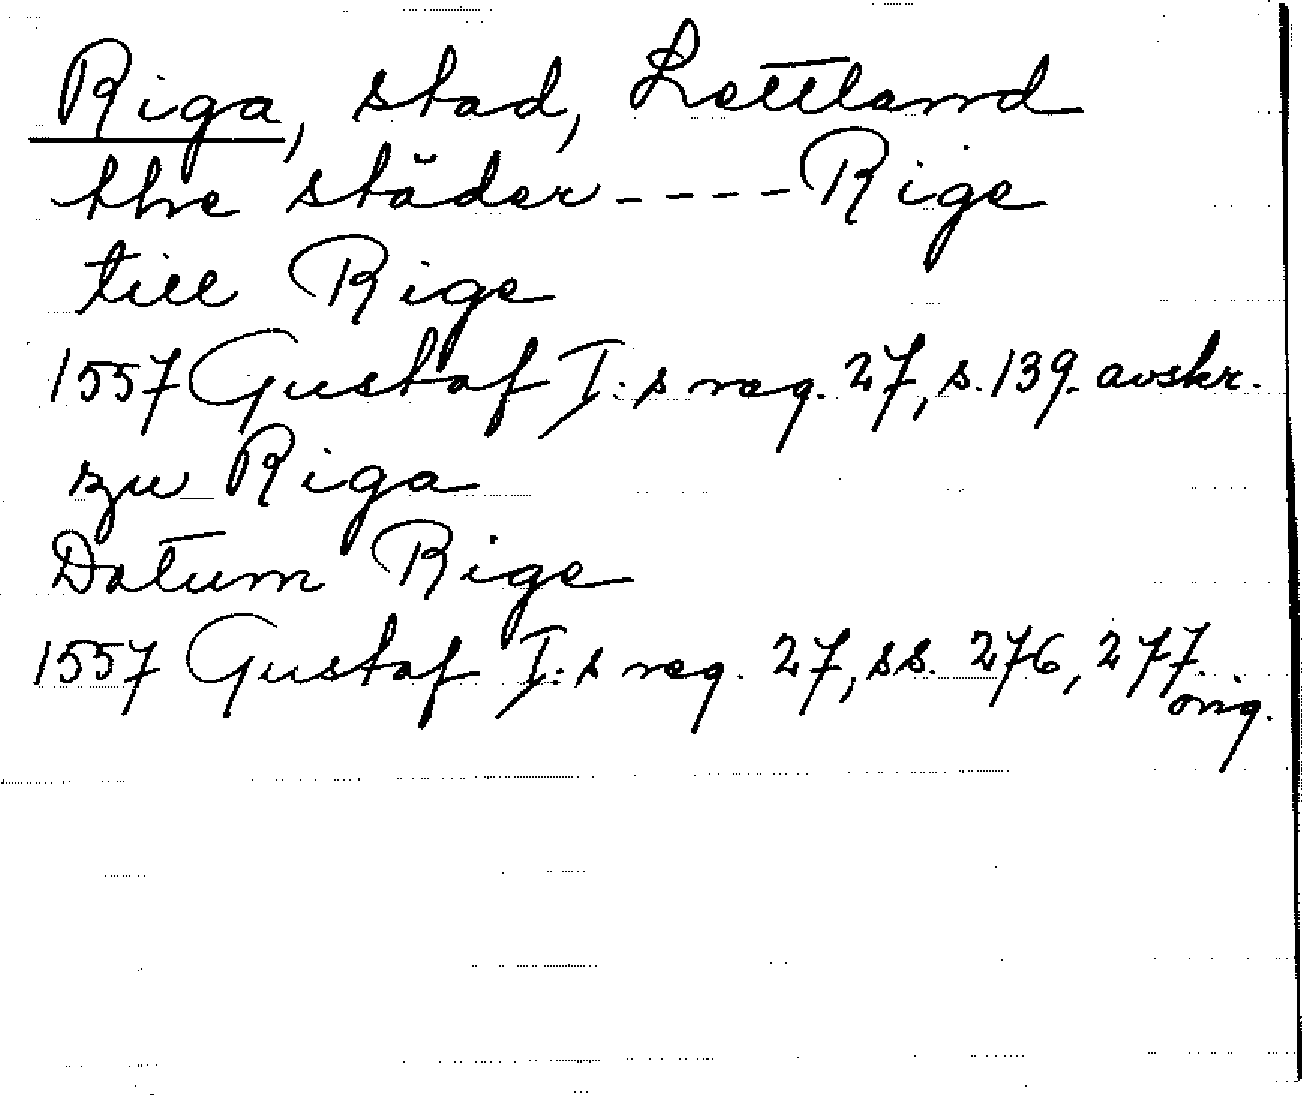 Riga, stad, Lettland
the städer ---- Rige
till Rige
1557 Gustaf I:s reg. 27, s. 139. avskr.
zu Riga
Datum Rige
1557 Gustaf I:s reg. 27, ss. 276, 277.
orig.